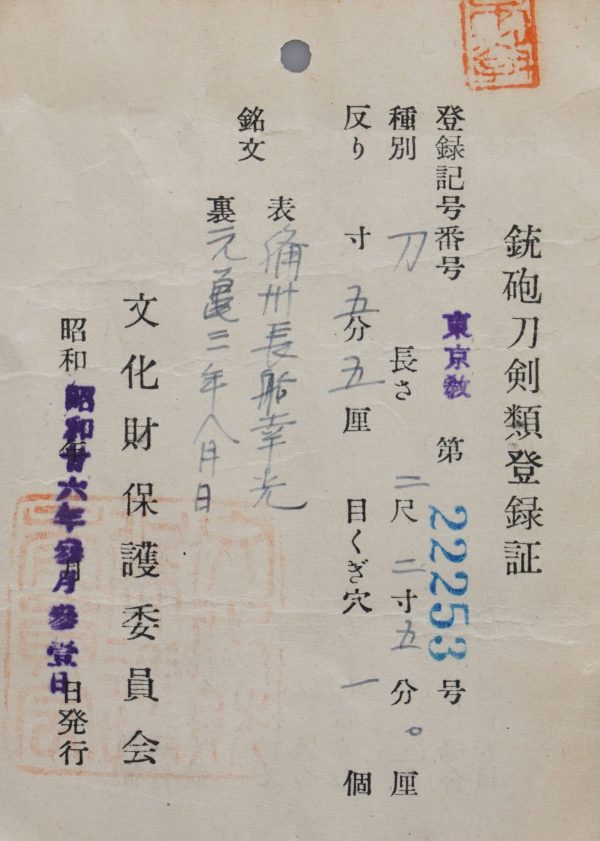 銃砲刀剣類登録証
登録記号番号 東京教 第 22253 号
種別 刀 長さ 二尺 二寸 五分 〇厘
反り 寸 五分 五厘 目くぎ穴 一 個
銘文 表 備州長船幸光
裏 元亀三年八月日
文化財保護委員会
昭和 昭和廿六年 月参壹日 日発行